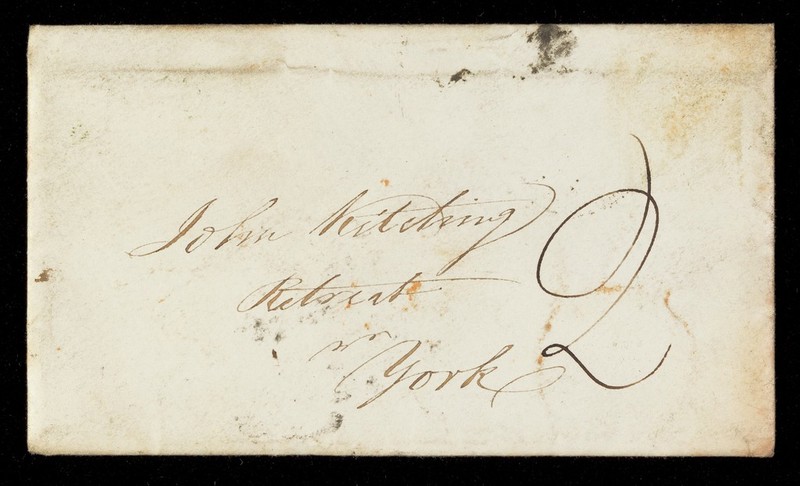 John Kitching
Retreat
nr
York
2